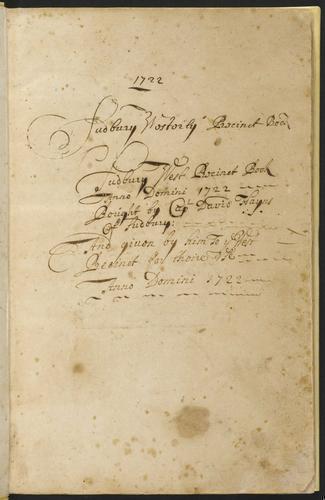 1722
Sudbury Westorly Precinct Book
Sudbury West Precinct Book
Anno Domini 1722
Bought by Capt David Haynes
Of Sudbury:
And given by him To ye West
Precinct for theire Use
Anno Domini 1722